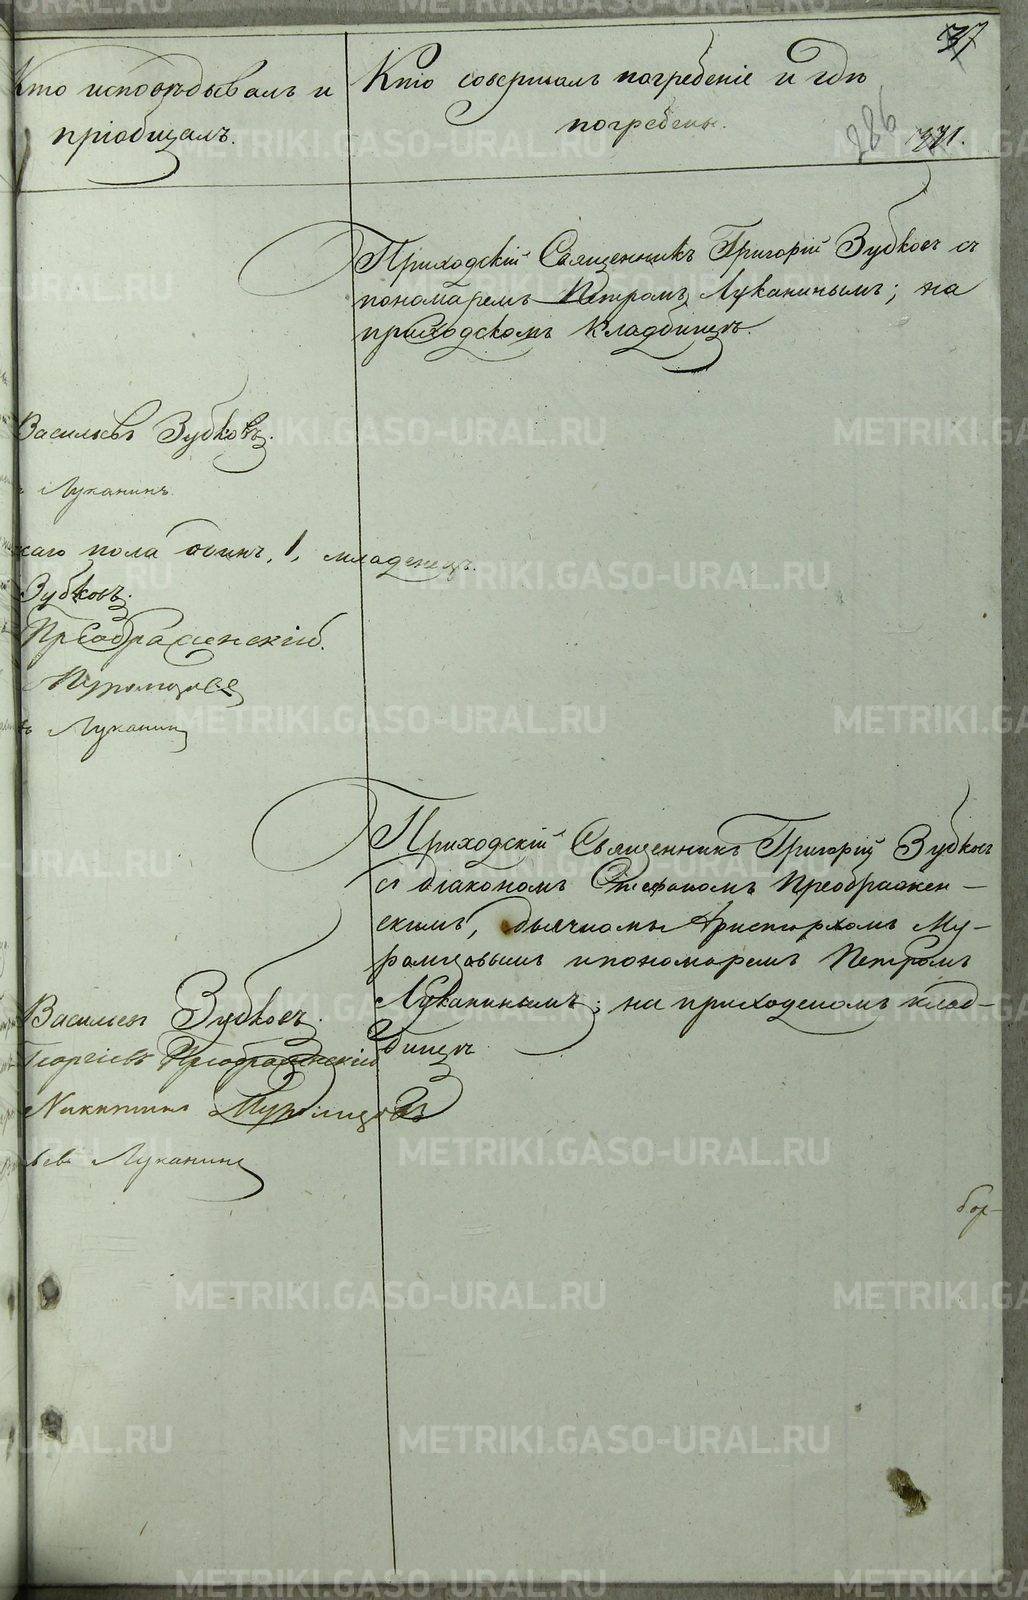 37
Кто исповѣдывалъ и
пріобщалъ.
Кто совершалъ погребеніе и гдѣ
погребены.
286
371.
Приходскій Священникъ Григорій Зубковъ съ
пономаремъ Петромъ Луканинымъ; на
приходскомъ кладбищѣ.
Васильевъ Зубковъ.
Луканинъ
каго пола одинъ, 1, младенецъ.
Зубковъ.
Преображенскій.
Муромцовъ
Луканинъ
Приходскій Священникъ Григорій Зубковъ
съ діакономъ Стефаномъ Преображен-
скимъ, дьячкомъ Аристархомъ Му-
ромцовымъ и пономаремъ Петромъ
Луканинымъ; на приходскомъ клад-
бищѣ
Васильевъ Зубковъ.
Георгіевъ Преображенскій
Никитинъ Муромцовъ
ьевъ Луканинъ
METRIKI.GASO-URAL.RU